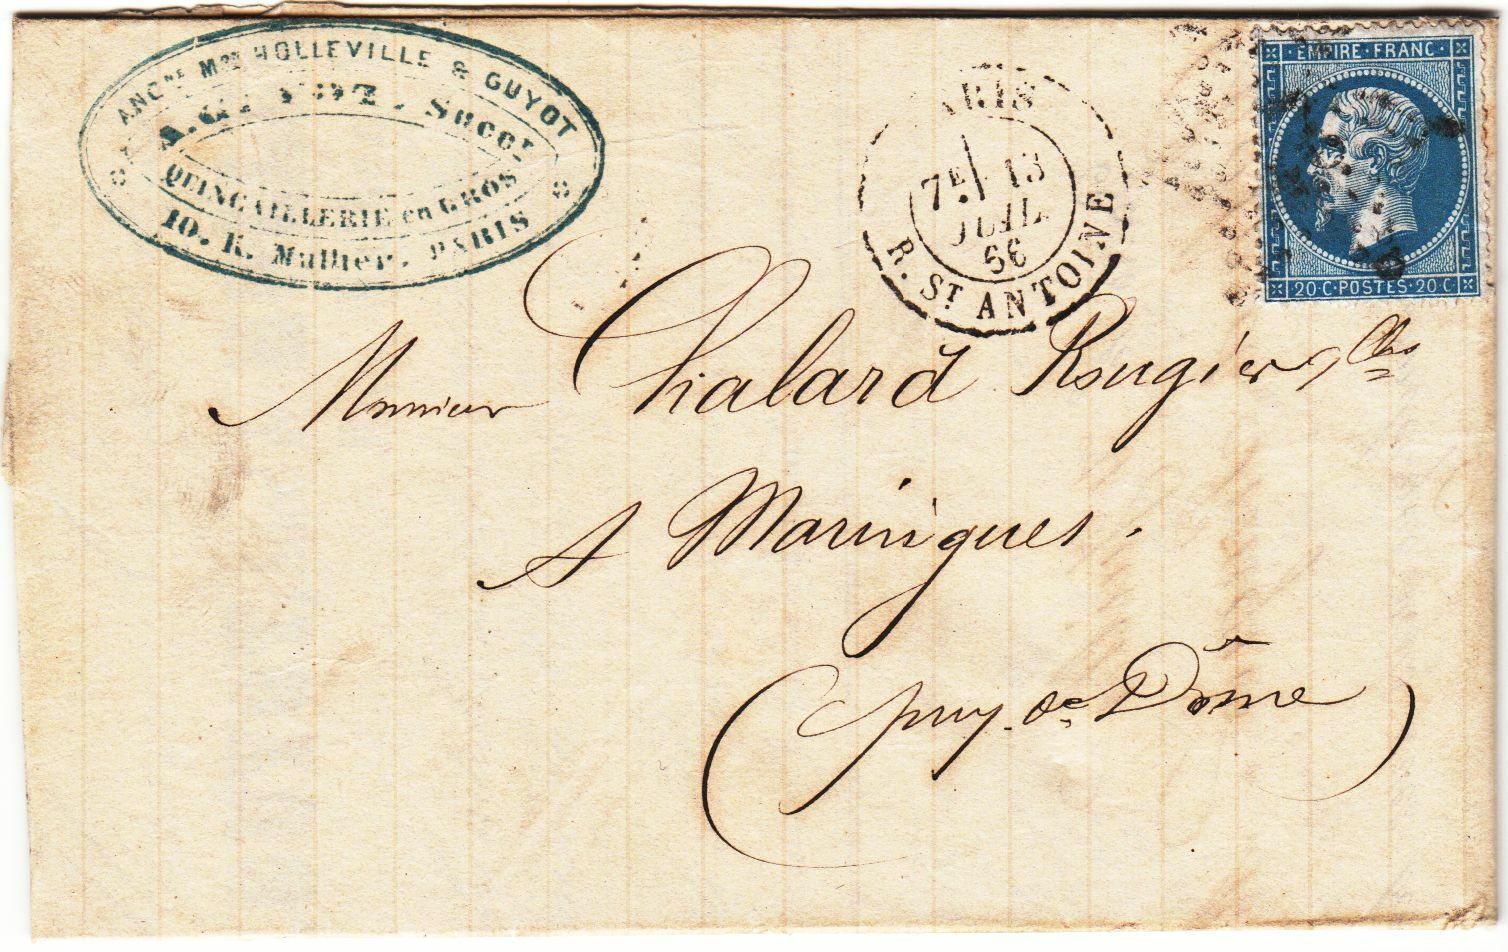 ANCNE MON HOLLEVILLE & GUYOT
Succr
QUINCAILLERIE en GROS
10. R. Mulher. PARIS
PARIS
7E 13
JUIL
66
R. ST. ANTOINE
EMPIRE · FRANC ·
20 · C · POSTES · 20 · C ·
Monsieur Chalard Rougier
A Maringues.
(Puy de Dôme)